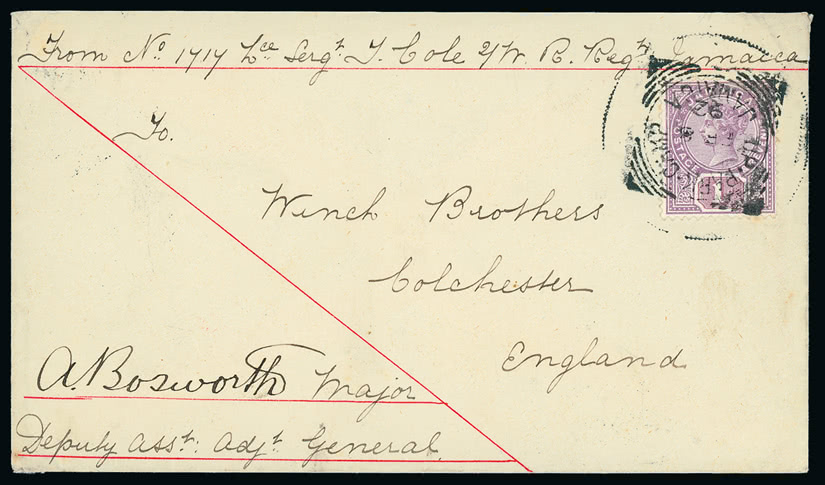 From No. 1717 Lce Sergt. T. Cole 2/W. R. Regt. Jamaica
To.
Winch Brothers
Colchester
England
A. Bosworth Major
Deputy Asst. Adjt. General.
JAMAICA